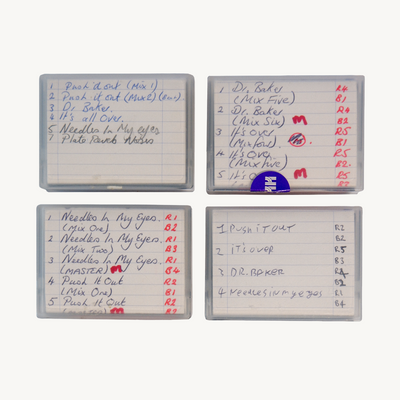 1 Push it out (Mix 1)
2 Push it out (Mix 2)
3 Dr. Baker.
4 It's all Over.
5 Needles In My eyes
7 Plate Reverb
1 Dr. Baker R4
(Mix Five) B1
2 Dr. Baker R4
(Mix Six) M B2
3 It's Over R5
(Mix four) B1
4 It's Over. R5
(Mix five) B2
5 It's M R5
MM
1 Needles In My Eyes. R1
(Mix One) B2
2 Needles In My Eyes. R1
(Mix Two) B3
3 Needles In My Eyes. R1
(MASTER) M B4
4 Push It Out R2
(Mix One) B1
5 Push It Out R2
(MASTER) M B2
1 PUSH IT OUT R2
B2
2 IT'S OVER R5
B3
3 DR. BAKER R4
B2
4 NEEDLES IN MY EYES R1
B4